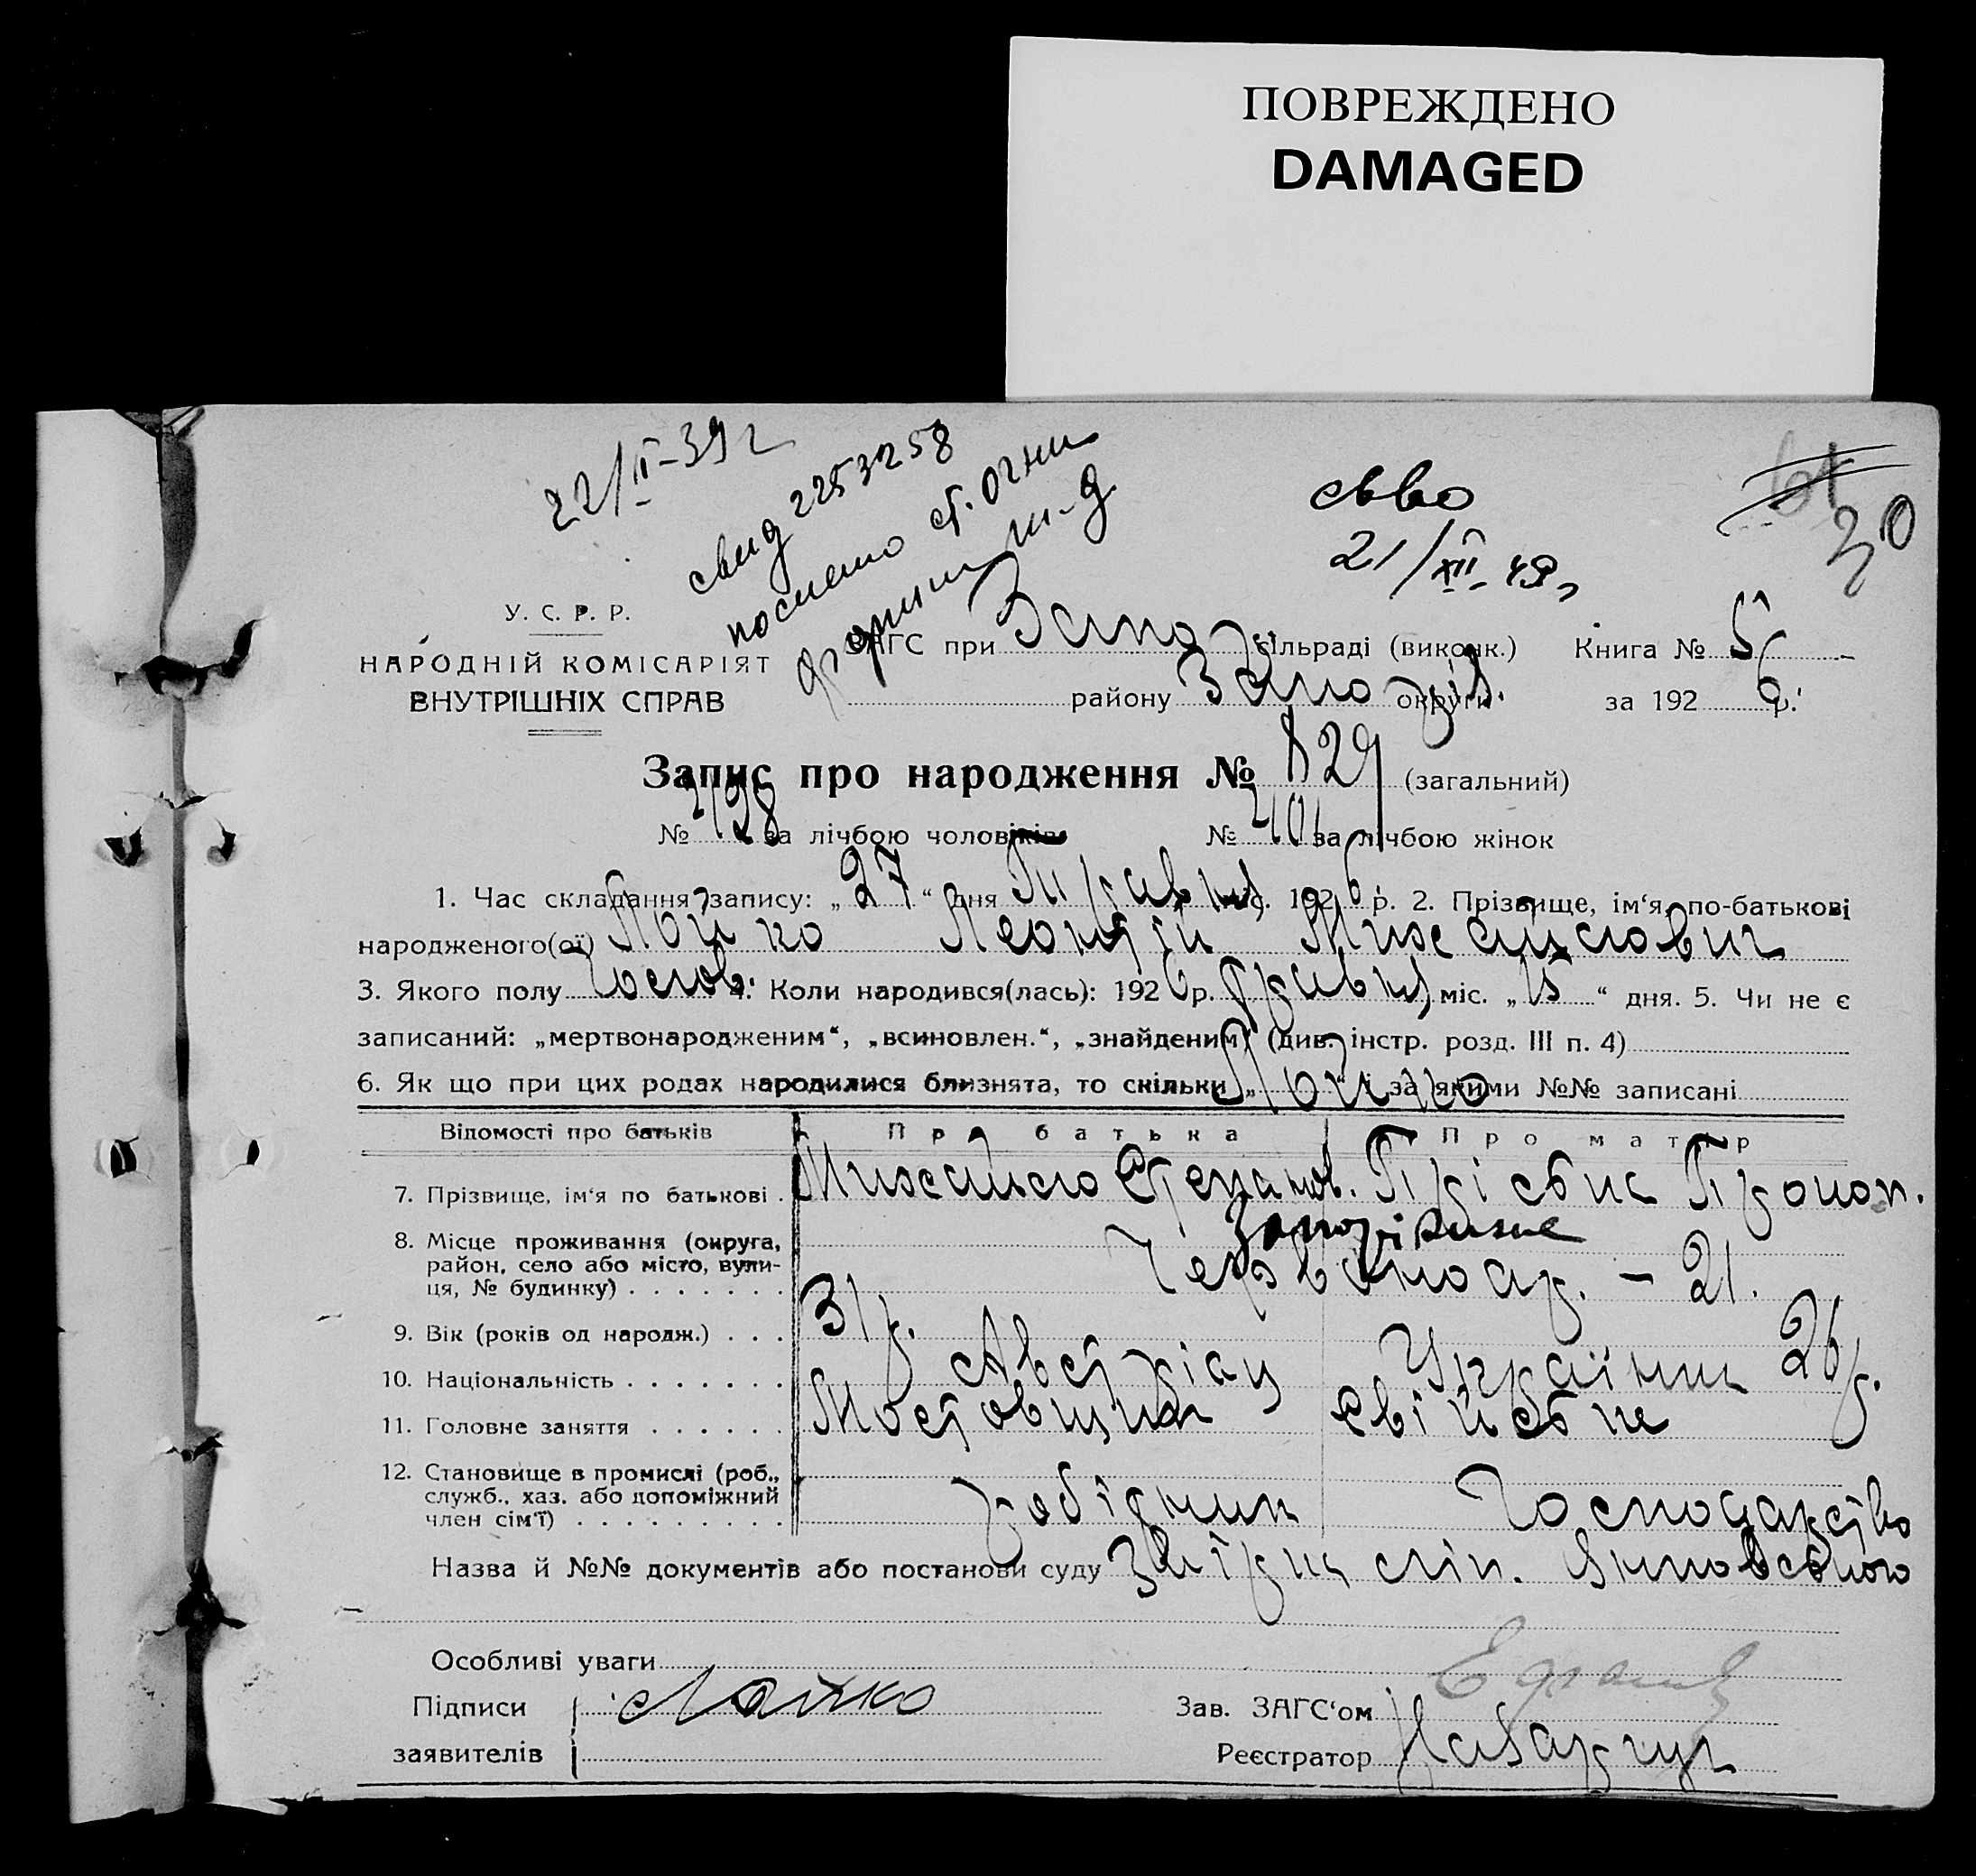 ПОВРЕЖДЕНО
DAMAGED
22/II-39 г
свид 2253258
послано ст.
св-во
21/XII-49 г
61
30
У. С. Р. Р.
НАРОДНІЙ КОМІСАРІЯТ
ВНУТРІШНІХ СПРАВ
ЗАГС при Запо сільраді (виконк.) Книга № 5
району Запоріз. округи за 1926 р.
Запис про народження № 829 (загальний)
№ 428 за лічбою чоловіків № 401 за лічбою жінок
1. Час складання запису: „27“ дня Травня міс. 1926 р. 2. Прізвище, ім‘я, по-батькові
народженого(ої) Лойко Леонтій Михайлович
3. Якого полу Чолов. 4. Коли народився(лась): 1926 р. травня міс. „15“ дня. 5. Чи не є
записаний: „мертвонародженим“, „всиновлен.“, „знайденим“ (див. інстр. розд. III п. 4)
6. Як що при цих родах народилися близнята, то скільки „ “ і за якими №№ записані
Лойко
Відомості про батьків Про батька Про матір
7. Прізвище, ім‘я по батькові . Михайло Степанов. Пріська Прокоп.
8. Місце проживання (округа, Запоріжжя
район, село або місто, вули- Червоноар. – 21.
ця, № будинку) . . . . . . .
9. Вік (років од народж.) . . . 31 р. 26 р.
10. Національність . . . . . . . Австріяц Українка
11. Головне заняття . . . . . . Мостовщик свійське
12. Становище в промислі (роб.,
служб., хаз. або допоміжний робітник Господарство
член сім‘ї) . . . . . . . . .
Назва й №№ документів або постанови суду
Особливі уваги
Підписи Лойко Зав. ЗАГС‘ом
заявителів Реєстратор